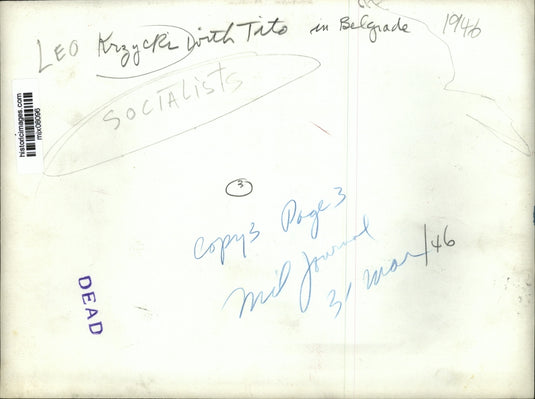 Leo Krzycki with Tito in Belgrade 1946
SOCIALISTS
historicimages.com
mix08096
3
copy3 Page 3
Mil Journal
31 Mar/46
DEAD